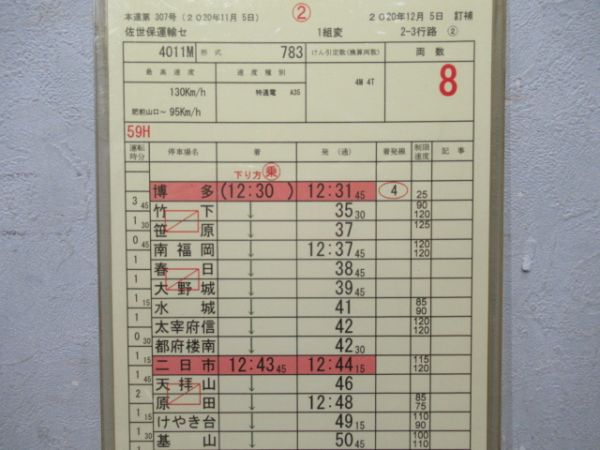 本運第 307号 (2020年11月 5日) ② 2020年12月 5日 訂補
佐世保運輸セ 1組変 2-3行路 ②
4011M 形式 783 けん引定数(換算両数) 両数
最高速度 速度種別 4M 4T 8
130Km/h 特通電 A35
肥前山口~ 95Km/h
59H
運転時分 停車場名 着 発 (通) 着発線 制限速度 記事
下り方 乗
博多 (12:30 ) 12:31 45 4 25
3 45 竹下 ↓ 35 30 90 120
1 30 笹原 ↓ 37 125
0 45 南福岡 ↓ 12:37 45 120 120
1 春日 ↓ 38 45
1 大野城 ↓ 39 45
1 15 水城 ↓ 41 85 90
1 太宰府信 ↓ 42 120 120
0 30 都府楼南 ↓ 42 30
1 15 二日市 12:43 45 12:44 15 115 120
1 45 天拝山 ↓ 46
2 原田 ↓ 12:48 85 75
1 15 けやき台 ↓ 49 15 110 90
1 30 基山 ↓ 50 45 100 110